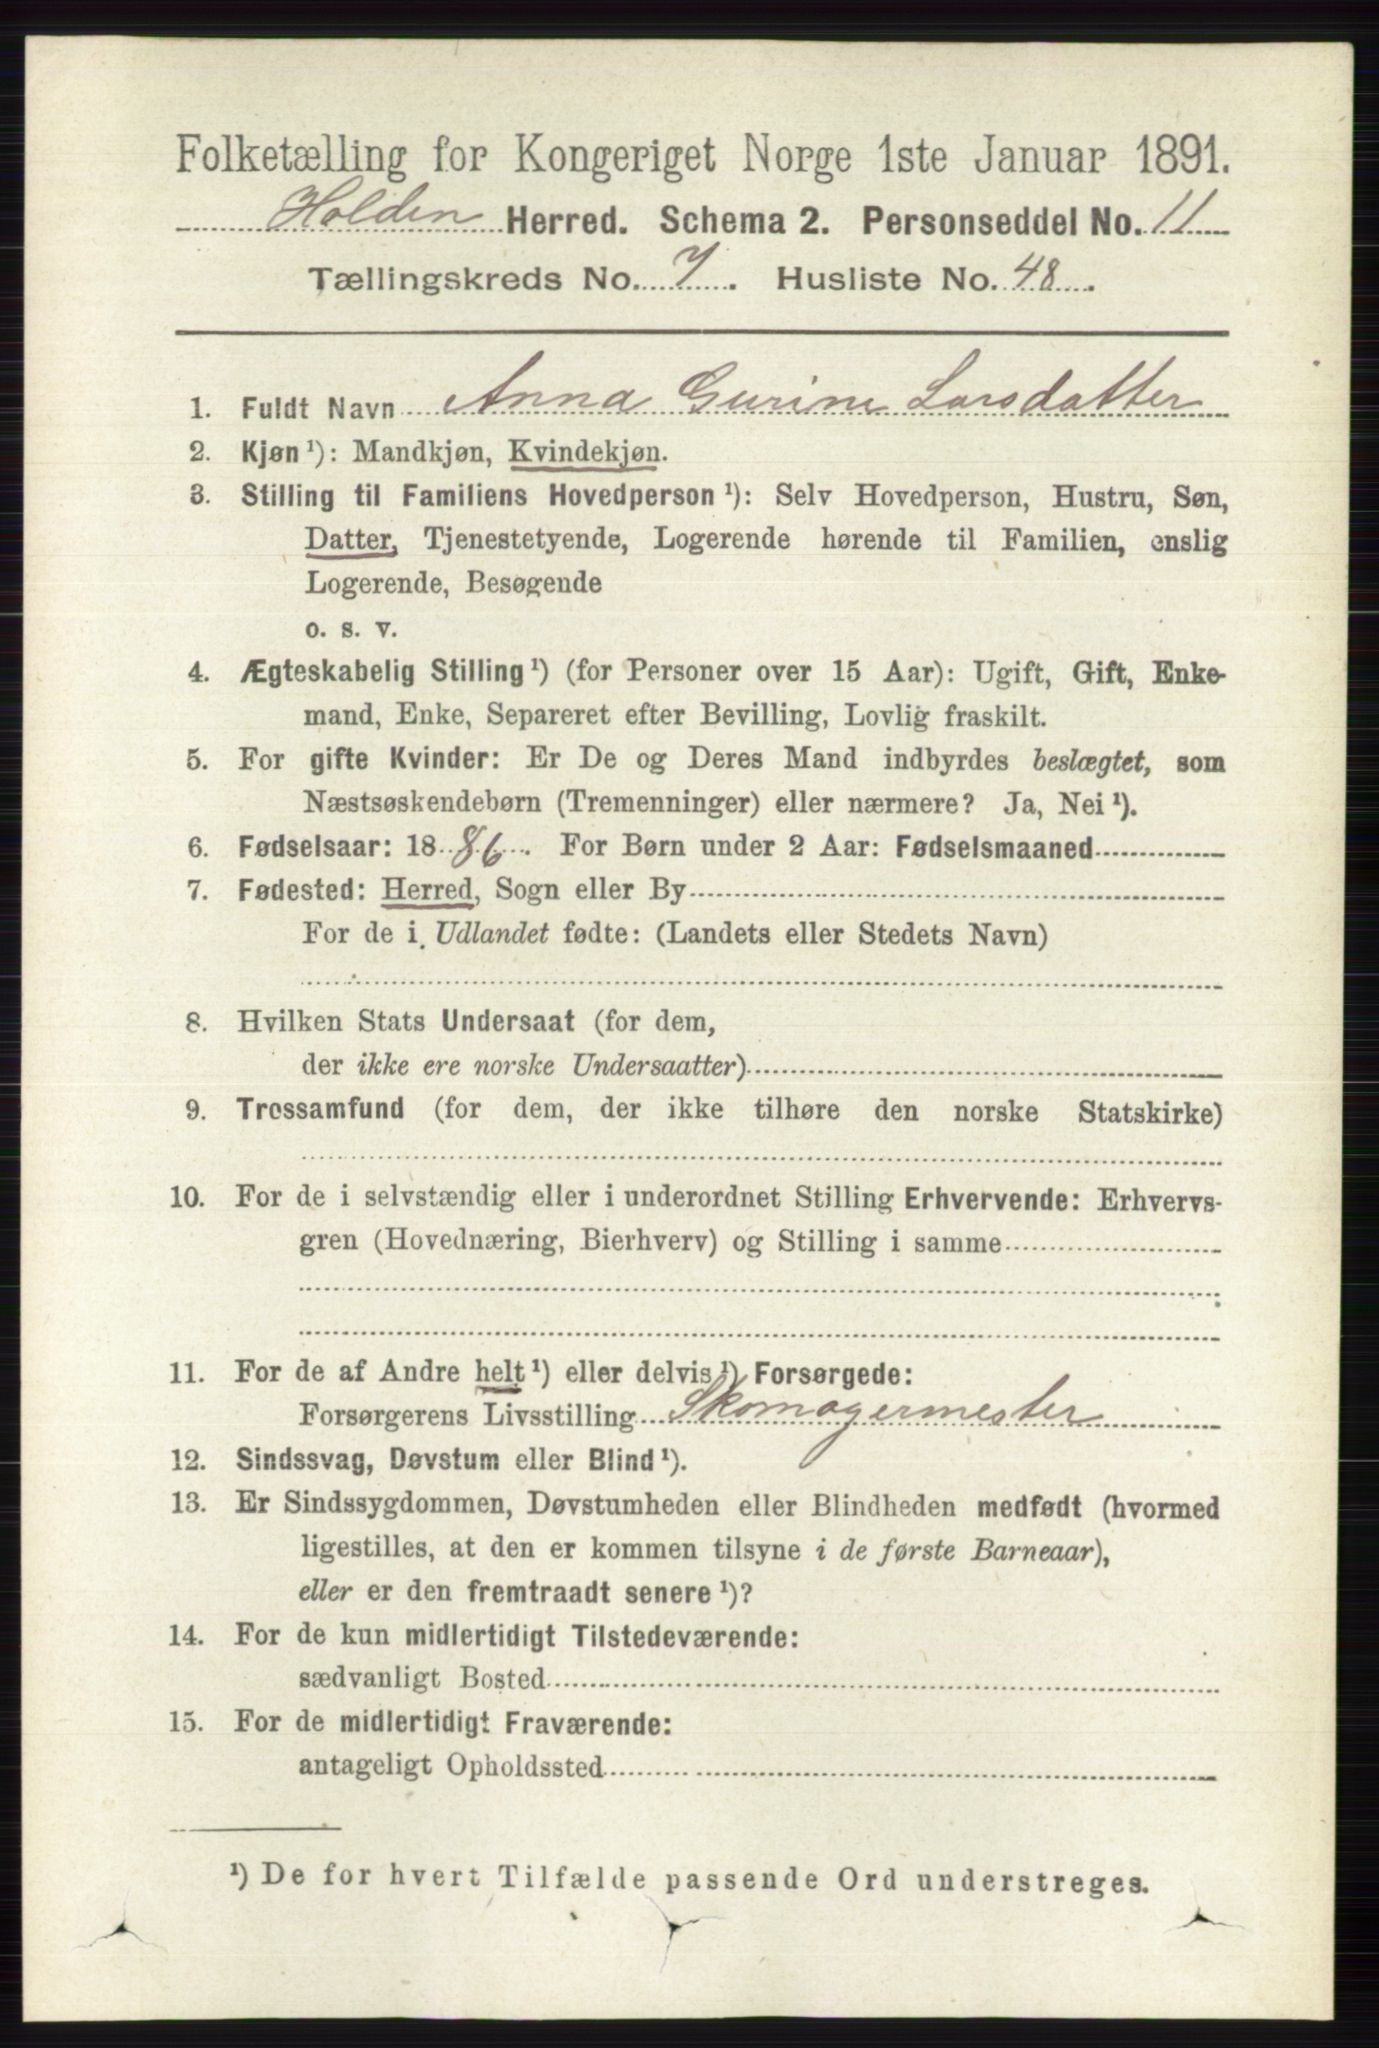 Folketælling for Kongeriget Norge 1ste Januar 1891.
Holden Herred. Schema 2. Personseddel No. 11
Tællingskreds No. 7. Husliste No. 48.
1. Fuldt Navn Anna Gurine Larsdatter
2. Kjøn¹): Mandkjøn, Kvindekjøn.
3. Stilling til Familiens Hovedperson¹): Selv Hovedperson, Hustru, Søn,
Datter, Tjenestetyende, Logerende hørende til Familien, enslig
Logerende, Besøgende
o. s. v.
4. Ægteskabelig Stilling¹) (for Personer over 15 Aar): Ugift, Gift, Enke-
mand, Enke, Separeret efter Bevilling, Lovlig fraskilt.
5. For gifte Kvinder: Er De og Deres Mand indbyrdes beslægtet, som
Næstsøskendebørn (Tremenninger) eller nærmere? Ja, Nei¹).
6. Fødselsaar: 1886. For Børn under 2 Aar: Fødselsmaaned
7. Fødested: Herred, Sogn eller By
For de i Udlandet fødte: (Landets eller Stedets Navn)
8. Hvilken Stats Undersaat (for dem,
der ikke ere norske Undersaatter)
9. Trossamfund (for dem, der ikke tilhøre den norske Statskirke)
10. For de i selvstændig eller i underordnet Stilling Erhvervende: Erhvervs-
gren (Hovednæring, Bierhverv) og Stilling i samme
11. For de af Andre helt¹) eller delvis¹) Forsørgede:
Forsørgerens Livsstilling Skomagermester
12. Sindssvag, Døvstum eller Blind¹).
13. Er Sindssygdommen, Døvstumheden eller Blindheden medfødt (hvormed
ligestilles, at den er kommen tilsyne i de første Barneaar),
eller er den fremtraadt senere¹)?
14. For de kun midlertidigt Tilstedeværende:
sædvanligt Bosted
15. For de midlertidigt Fraværende:
antageligt Opholdssted
¹) De for hvert Tilfælde passende Ord understreges.